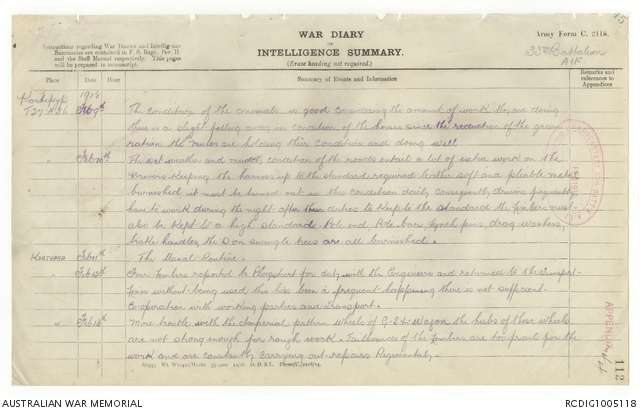 WAR DIARY
or
INTELLIGENCE SUMMARY.
(Erase heading not required.)
Army Form C. 2118.
35th Battalion
AIF
Instructions regarding War Diaries and Intelligence
Summaries are contained in F. S. Regs., Part II.
and the Staff Manual respectively. Title pages
will be prepared in manuscript.
Place
Date
Hour
Summary of Events and Information
Remarks and
references to
Appendices
1918
Feb 9th The condition of the animals is good considering the amount of work they are doing
there is a slight falling away in condition of the horses since the reduction of the grain
ration the mules are holding their condition and doing well
Feb 10th The wet weather and muddy condition of the roads entails a lot of extra work on the
drivers keeping the harness up to the standard required leather soft and pliable metal
burnished it must be turned out in this condition daily, consequently drivers frequently
have to work during the night after their duties to keep to the standard the limbers must
also be kept to a high standard. Pole and Pole bars, lynch pins, drag washers,
brake handles, the D on swingle trees are all burnished.
Feb 11th The Usual Routine.
" Feb 12th Four limbers reported to Ploegsteert for duty with the Engineers and returned to the transport
lines without being used this has been a frequent happening there is not sufficient
co-operation with working parties and transport.
" More trouble with the wheels of G.S. Wagon the hubs of these wheels
are not strong enough for rough work. of the limbers are too for the
work and are constantly carrying out repairs Regimentally.
112
AUSTRALIAN WAR MEMORIAL
RCDIG1005118